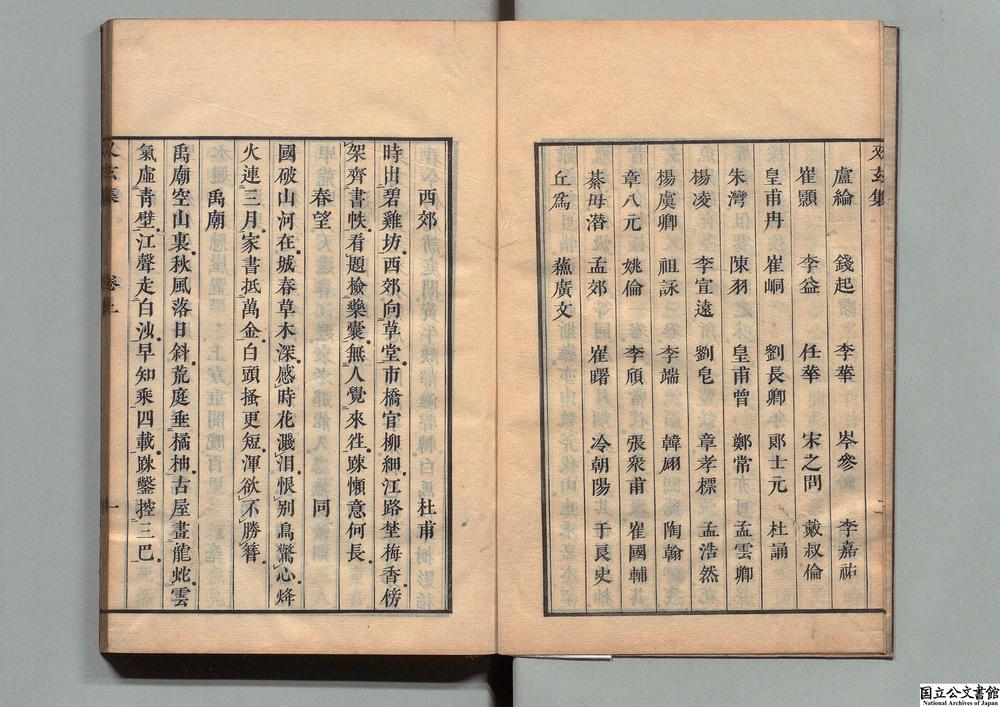 又玄集
盧綸 錢起 李華 岑參 李嘉祐
崔顥 李益 任華 宋之問 戴叔倫
皇甫冉 崔峒 劉長卿 郎士元 杜誦
朱灣 陳羽 皇甫曾 鄭常 孟雲卿
楊凌 李宣遠 劉皂 章孝標 孟浩然
楊虞卿 祖詠 李端 韓翃 陶翰
章八元 姚倫 李頎 張衆甫 崔國輔
綦毋潛 孟郊 崔曙 冷朝陽 于良史
丘爲 蘓廣文
西郊 杜甫
時出碧雞坊西郊向草堂市橋官柳細江路埜梅香傍
架齊書帙看題檢藥囊無人覺來徃踈懶意何長
春望 同
國破山河在城春草木深感時花濺泪恨别鳥驚心烽
火連三月家書抵萬金白頭搔更短渾欲不勝簪
禹廟
禹廟空山裏秋風落日斜荒庭垂橘柚古屋畫龍蛇雲
氣虛靑壁江聲走白沙早知乘四載踈鑿控三巴
又玄集 卷上 一
国立公文書館
National Archives of Japan